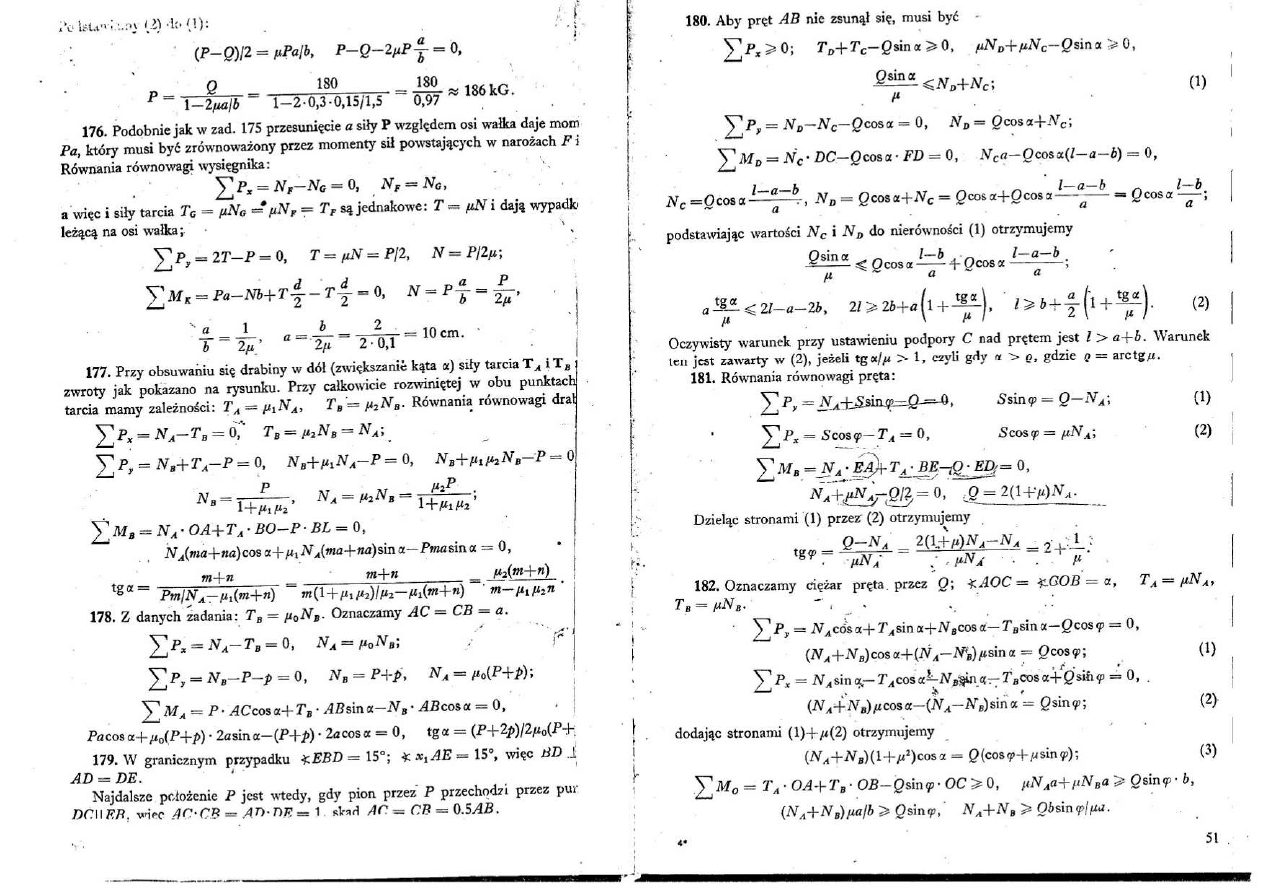 (2) do (1):
(P−Q)/2 = μPa/b, P−Q−2μP a/b = 0,
P = Q/(1−2μa/b) = 180/(1−2·0,3·0,15/1,5) = 180/0,97 ≈ 186 kG.
176. Podobnie jak w zad. 175 przesunięcie a siły P względem osi wałka daje mom
Pa, który musi być zrównoważony przez momenty sił powstających w narożach F i
Równania równowagi wysięgnika:
∑Pₓ = N_F−N_G = 0, N_F = N_G,
a więc i siły tarcia T_G = μN_G = μN_F = T_F są jednakowe: T = μN i dają wypadk
leżącą na osi wałka;
∑P_y = 2T−P = 0, T = μN = P/2, N = P/2μ;
∑M_K = Pa−Nb+T d/2 − T d/2 = 0, N = P a/b = P/2μ,
a/b = 1/2μ, a = b/2μ = 2/(2·0,1) = 10 cm.
177. Przy obsuwaniu się drabiny w dół (zwiększanie kąta α) siły tarcia T_A i T_B
zwroty jak pokazano na rysunku. Przy całkowicie rozwiniętej w obu punktach
tarcia mamy zależności: T_A = μ₁N_A, T_B = μ₂N_B. Równania równowagi
∑Pₓ = N_A−T_B = 0, T_B = μ₂N_B = N_A;
∑P_y = N_B+T_A−P = 0, N_B+μ₁N_A−P = 0, N_B+μ₁μ₂N_B−P = 0
N_B = P/(1+μ₁μ₂), N_A = μ₂N_B = μ₂P/(1+μ₁μ₂);
∑M_B = N_A·OA+T_A·BO−P·BL = 0,
N_A(ma+na)cos α+μ₁N_A(ma+na)sin α−Pma sin α = 0,
tg α = (m+n)/(Pm/N_A−μ₁(m+n)) = (m+n)/(m(1+μ₁μ₂)/μ₂−μ₁(m+n)) = μ₂(m+n)/(m−μ₁μ₂n).
178. Z danych zadania: T_B = μ₀N_B. Oznaczamy AC = CB = a.
∑Pₓ = N_A−T_B = 0, N_A = μ₀N_B;
∑P_y = N_B−P−p = 0, N_B = P+p, N_A = μ₀(P+p);
∑M_A = P·AC cos α+T_B·AB sin α−N_B·AB cos α = 0,
Pa cos α+μ₀(P+p)·2a sin α−(P+p)·2a cos α = 0, tg α = (P+2p)/2μ₀(P+
179. W granicznym przypadku ∢EBD = 15°; ∢x₁AE = 15°, więc BD ⊥
AD = DE.
Najdalsze położenie P jest wtedy, gdy pion przez P przechodzi przez
DC||EB, więc AC·CB = AD·DE = 1 skąd AC = CB = 0.5AB.
180. Aby pręt AB nie zsunął się, musi być
∑Pₓ ⩾ 0; T_D+T_C−Q sin α ⩾ 0, μN_D+μN_C−Q sin α ⩾ 0,
Q sin α/μ ⩽ N_D+N_C; (1)
∑P_y = N_D−N_C−Q cos α = 0, N_D = Q cos α+N_C;
∑M_D = N_C·DC−Q cos α·FD = 0, N_C a−Q cos α(l−a−b) = 0,
N_C = Q cos α (l−a−b)/a, N_D = Q cos α+N_C = Q cos α+Q cos α (l−a−b)/a = Q cos α (l−b)/a;
podstawiając wartości N_C i N_D do nierówności (1) otrzymujemy
Q sin α/μ ⩽ Q cos α (l−b)/a + Q cos α (l−a−b)/a;
a tg α/μ ⩽ 2l−a−2b, 2l ⩾ 2b+a(1+tg α/μ), l ⩾ b+a/2(1+tg α/μ). (2)
Oczywisty warunek przy ustawieniu podpory C nad prętem jest l > a+b. Warunek
ten jest zawarty w (2), jeżeli tg α/μ > 1, czyli gdy α > ϱ, gdzie ϱ = arctg μ.
181. Równania równowagi pręta:
∑P_y = N_A+S sin φ−Q = 0, S sin φ = Q−N_A; (1)
∑Pₓ = S cos φ−T_A = 0, S cos φ = μN_A; (2)
∑M_B = N_A·EA+T_A·BE−Q·ED = 0,
N_A+μN_A−Q/2 = 0, Q = 2(1+μ)N_A.
Dzieląc stronami (1) przez (2) otrzymujemy
tg φ = (Q−N_A)/μN_A = (2(1+μ)N_A−N_A)/μN_A = 2+1/μ.
182. Oznaczamy ciężar pręta przez Q; ∢AOC = ∢GOB = α, T_A = μN_A,
T_B = μN_B.
∑P_y = N_A cos α+T_A sin α+N_B cos α−T_B sin α−Q cos φ = 0,
(N_A+N_B)cos α+(N_A−N_B)μ sin α = Q cos φ; (1)
∑Pₓ = N_A sin α−T_A cos α−N_B sin α−T_B cos α+Q sin φ = 0,
(N_A+N_B)μ cos α−(N_A−N_B)sin α = Q sin φ; (2)
dodając stronami (1)+μ(2) otrzymujemy
(N_A+N_B)(1+μ²)cos α = Q(cos φ+μ sin φ); (3)
∑M_O = T_A·OA+T_B·OB−Q sin φ·OC ⩾ 0, μN_A a+μN_B a ⩾ Q sin φ·b,
(N_A+N_B)μa/b ⩾ Q sin φ, N_A+N_B ⩾ Qb sin φ/μa.
4*
51